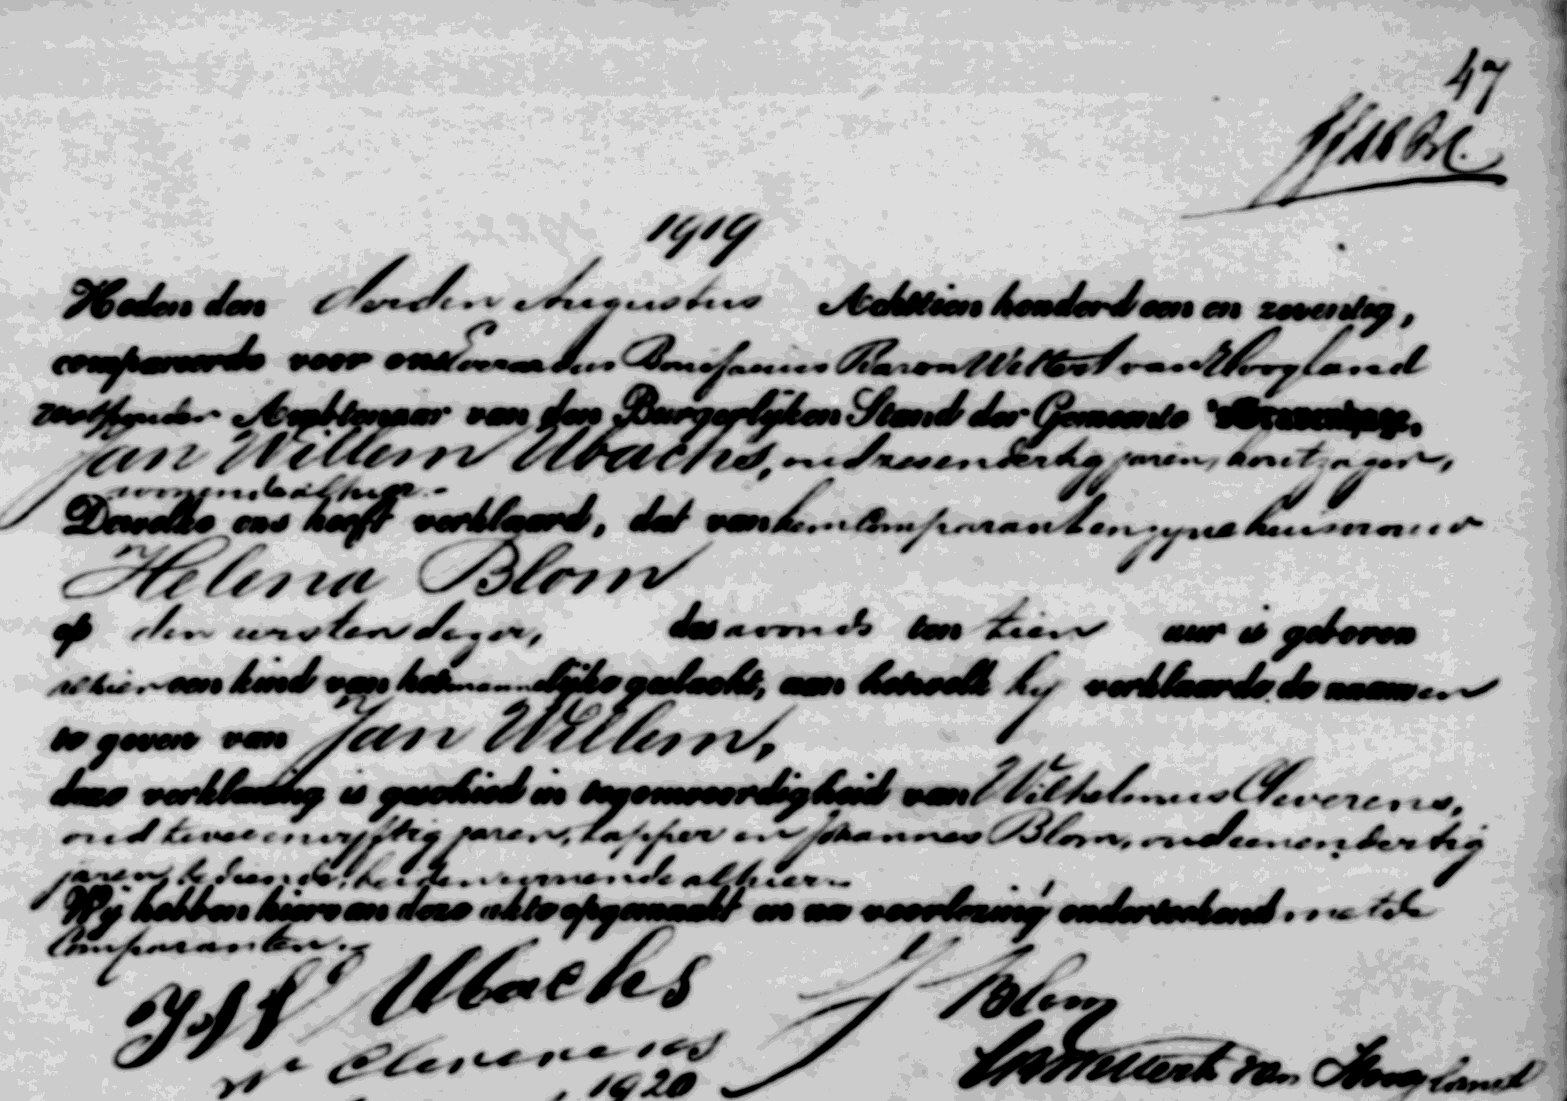 47
1919
Heden den derden Augustus Achttien honderd een en zeventig,
compareerde voor ons Everardus Bonifacius Baron Wittert van Hoogland
Ambtenaar van den Burgerlijken Stand der Gemeente 's Gravenhage,
Jan Willem Ubachs, oud zesendertig jaren, houtzager,
wonende alhier.-
Dewelke ons heeft verklaard, dat van hem Comparant en zyne huisvrouw
Helena Blom
op den eersten dezer, des avonds ten tien uur is geboren
alhier een kind van het mannelijke geslacht, aan hetwelk hij verklaarde de naamen
te geven van Jan Willem,
deze verklaring is geschied in tegenwoordigheid van Wilhelmus Cleverens,
oud tweeenvyftig jaren, tapper en Johannes Blom, oud eenendertig
jaren, bediende, beiden wonende alhier.-
Wij hebben hiervan deze akte opgemaakt en na voorlezing onderteekend met de
Comparanten.-
J W Ubachs J Blom
W Cleverens Wittert van Hoogland
1920